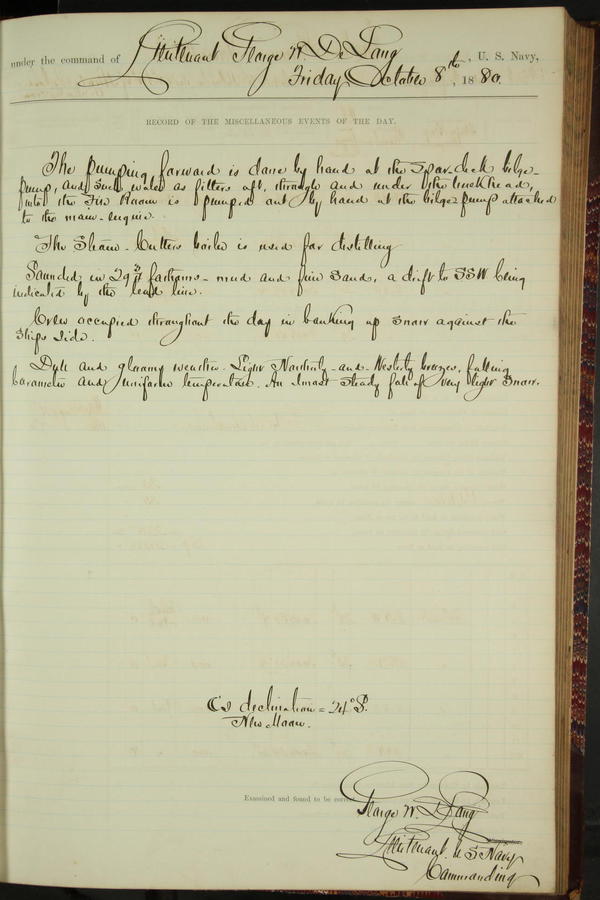 under the command of Lieutenant George W. De Long, U. S. Navy,
Friday, October 8th, 1880.
RECORD OF THE MISCELLANEOUS EVENTS OF THE DAY.
The pumping forward is done by hand at the Spar-deck bilge-
pump, and such water as filters aft, through and under the bulkhead,
into the Fire Room is pumped out by hand at the bilge pump attached
to the main-engine.
The Steam-Cutters boiler is used for distilling
Sounded in 29 fathoms - mud and fine sand, a drift to SSW being
indicated by the lead line.
Crew occupied throughout the day in banking up snow against the
Ships side.
Dull and gloomy weather. Light Northerly and Westerly breezes, falling
barometer and uniform temperature. An almost steady fall of very light snow.
declination = 24° S.
New Moon.
Examined and found to be correct
George W. De Long
Lieutenant. U S Navy
Commanding